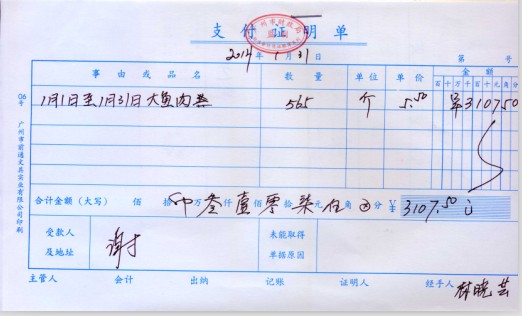 支付证明单
2014年1月31日 第 号
事由或品名 数量 单位 单价 金额
百十万千百十元角分
1月1日至1月31日大鱼肉 565 个 5.50 3107.50
合计金额（大写） 佰 拾 万叁仟壹佰零拾柒元伍角 分 ￥3107.50
受款人及地址
谢
未能取得单据原因
主管人 会计 出纳 记账 证明人 经手人 林晓芸
06号 广州市前通文具实业有限公司印刷